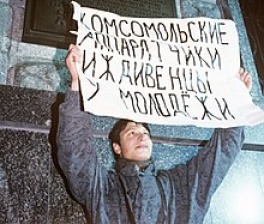 КОМСОМОЛЬСКИЕ
АППАРАТЧИКИ
ИЖДИВЕНЦЫ
У МОЛОДЁЖИ